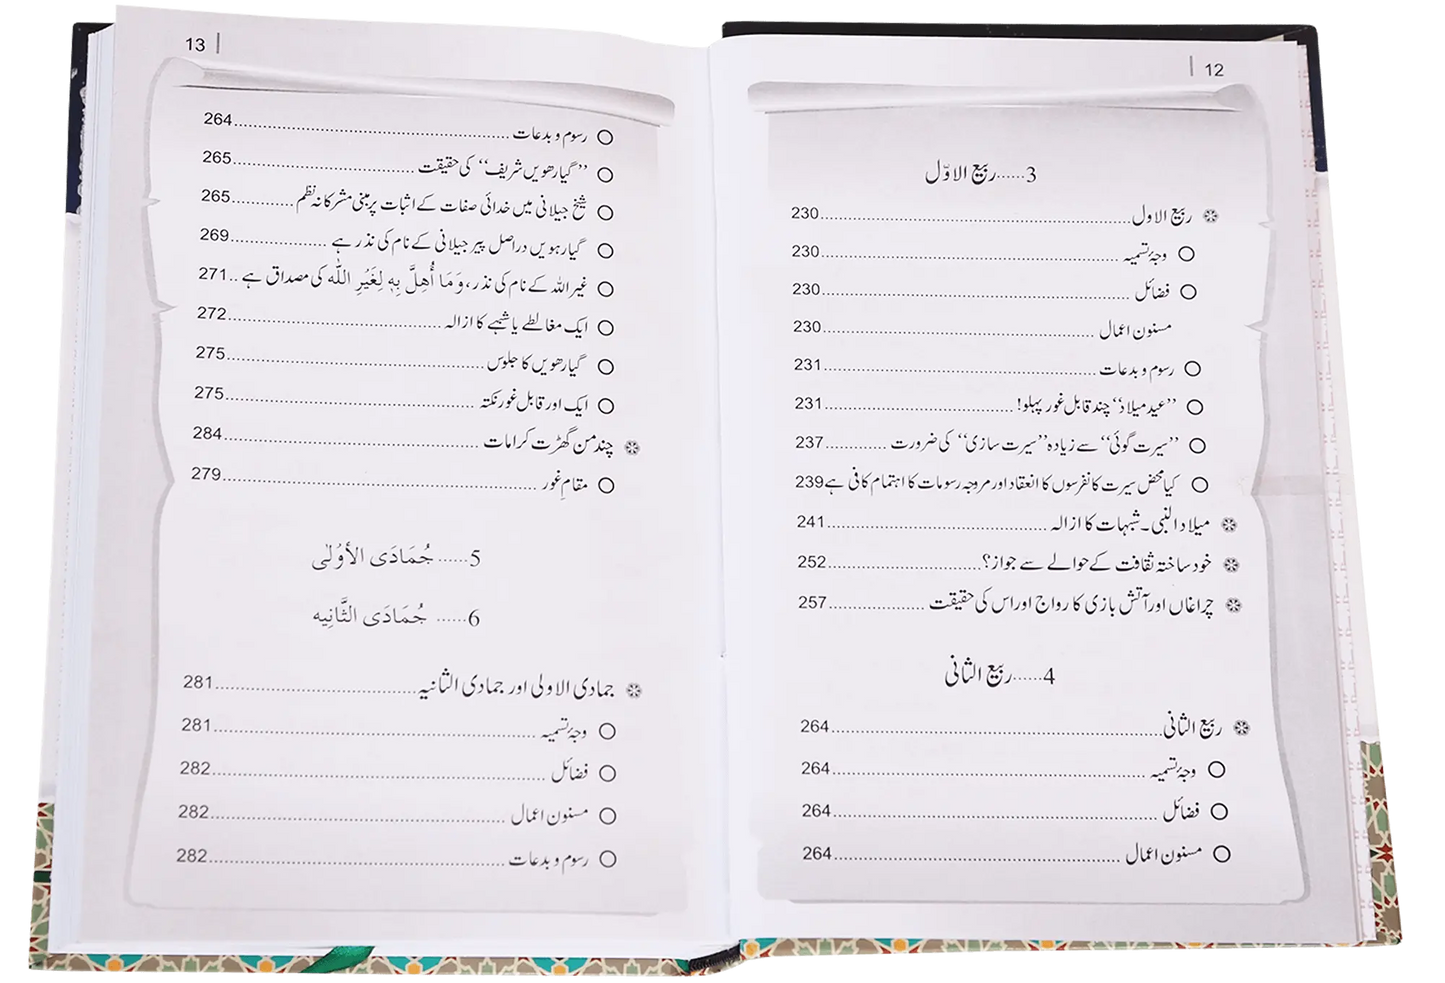 12
3......ربیع الاوّل
ربیع الاول......230
وجۂ تسمیہ......230
فضائل......230
مسنون اعمال......230
رسوم و بدعات......231
’’عید میلاد‘‘ چند قابل غور پہلو!......231
’’سیرت گوئی‘‘ سے زیادہ ’’سیرت سازی‘‘ کی ضرورت......237
کیا محض سیرت کانفرسوں کا انعقاد اور مروجہ رسومات کا اہتمام کافی ہے239
میلاد النبی۔شبہات کا ازالہ......241
خود ساختہ ثقافت کے حوالے سے جواز؟......252
چراغاں اور آتش بازی کا رواج اور اس کی حقیقت......257
4......ربیع الثانی
ربیع الثانی......264
وجۂ تسمیہ......264
فضائل......264
مسنون اعمال......264
13
رسوم و بدعات......264
’’گیارھویں شریف‘‘ کی حقیقت......265
شیخ جیلانی میں خدائی صفات کے اثبات پر مبنی مشرکانہ نظم......265
گیارہویں دراصل پیر جیلانی کے نام کی نذر ہے......269
غیر اللہ کے نام کی نذر، وَمَا أُهِلَّ بِهٖ لِغَيْرِ اللّٰه کی مصداق ہے..271
ایک مغالطے یا شبہے کا ازالہ......272
گیارھویں کا جلوس......275
ایک اور قابل غور نکتہ......275
چند من گھڑت کرامات......284
مقامِ غور......279
5......جُمَادَى الأوْلٰى
6......جُمَادَى الثَّانِيه
جمادی الاولی اور جمادی الثانیہ......281
وجۂ تسمیہ......281
فضائل......282
مسنون اعمال......282
رسوم و بدعات......282